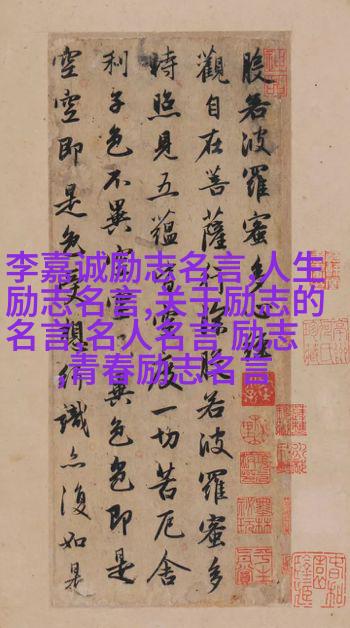 李嘉诚励志名言,人生
励志名言,关于励志的
名言,名人名言 励志
,青春励志名言
般若波羅蜜多心經
觀自在菩薩行深般若波羅蜜多
時照見五蘊皆空度一切苦厄舍
利子色不異空空不異色色即是
空空即是色受想行識亦復如是